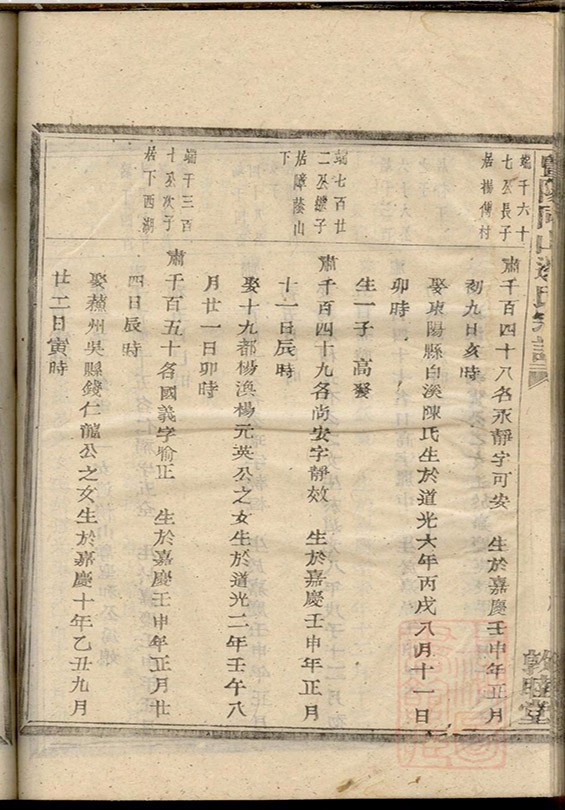 端千六十
七公長子
居楊傅村
肅千百四十八名永靜字可安　生於嘉慶壬申年正月
初九日亥時
娶東陽縣白溪陳氏生於道光六年丙戌八月十一日
卯時
生一子　高發
端七百廿
二公繼子
居障蔭山
下
肅千百四十九名尚安字靜效　生於嘉慶壬申年正月
十一日辰時
娶十九都楊浜楊元英公之女生於道光二年壬午八
月廿一日卯時
端千三百
十公次子
居下西湖
肅千百五十名國義字喻正　生於嘉慶壬申年正月廿
四日辰時
娶蘓州吳縣錢仁龍公之女生於嘉慶十年乙丑九月
廿二日寅時
敦睦堂